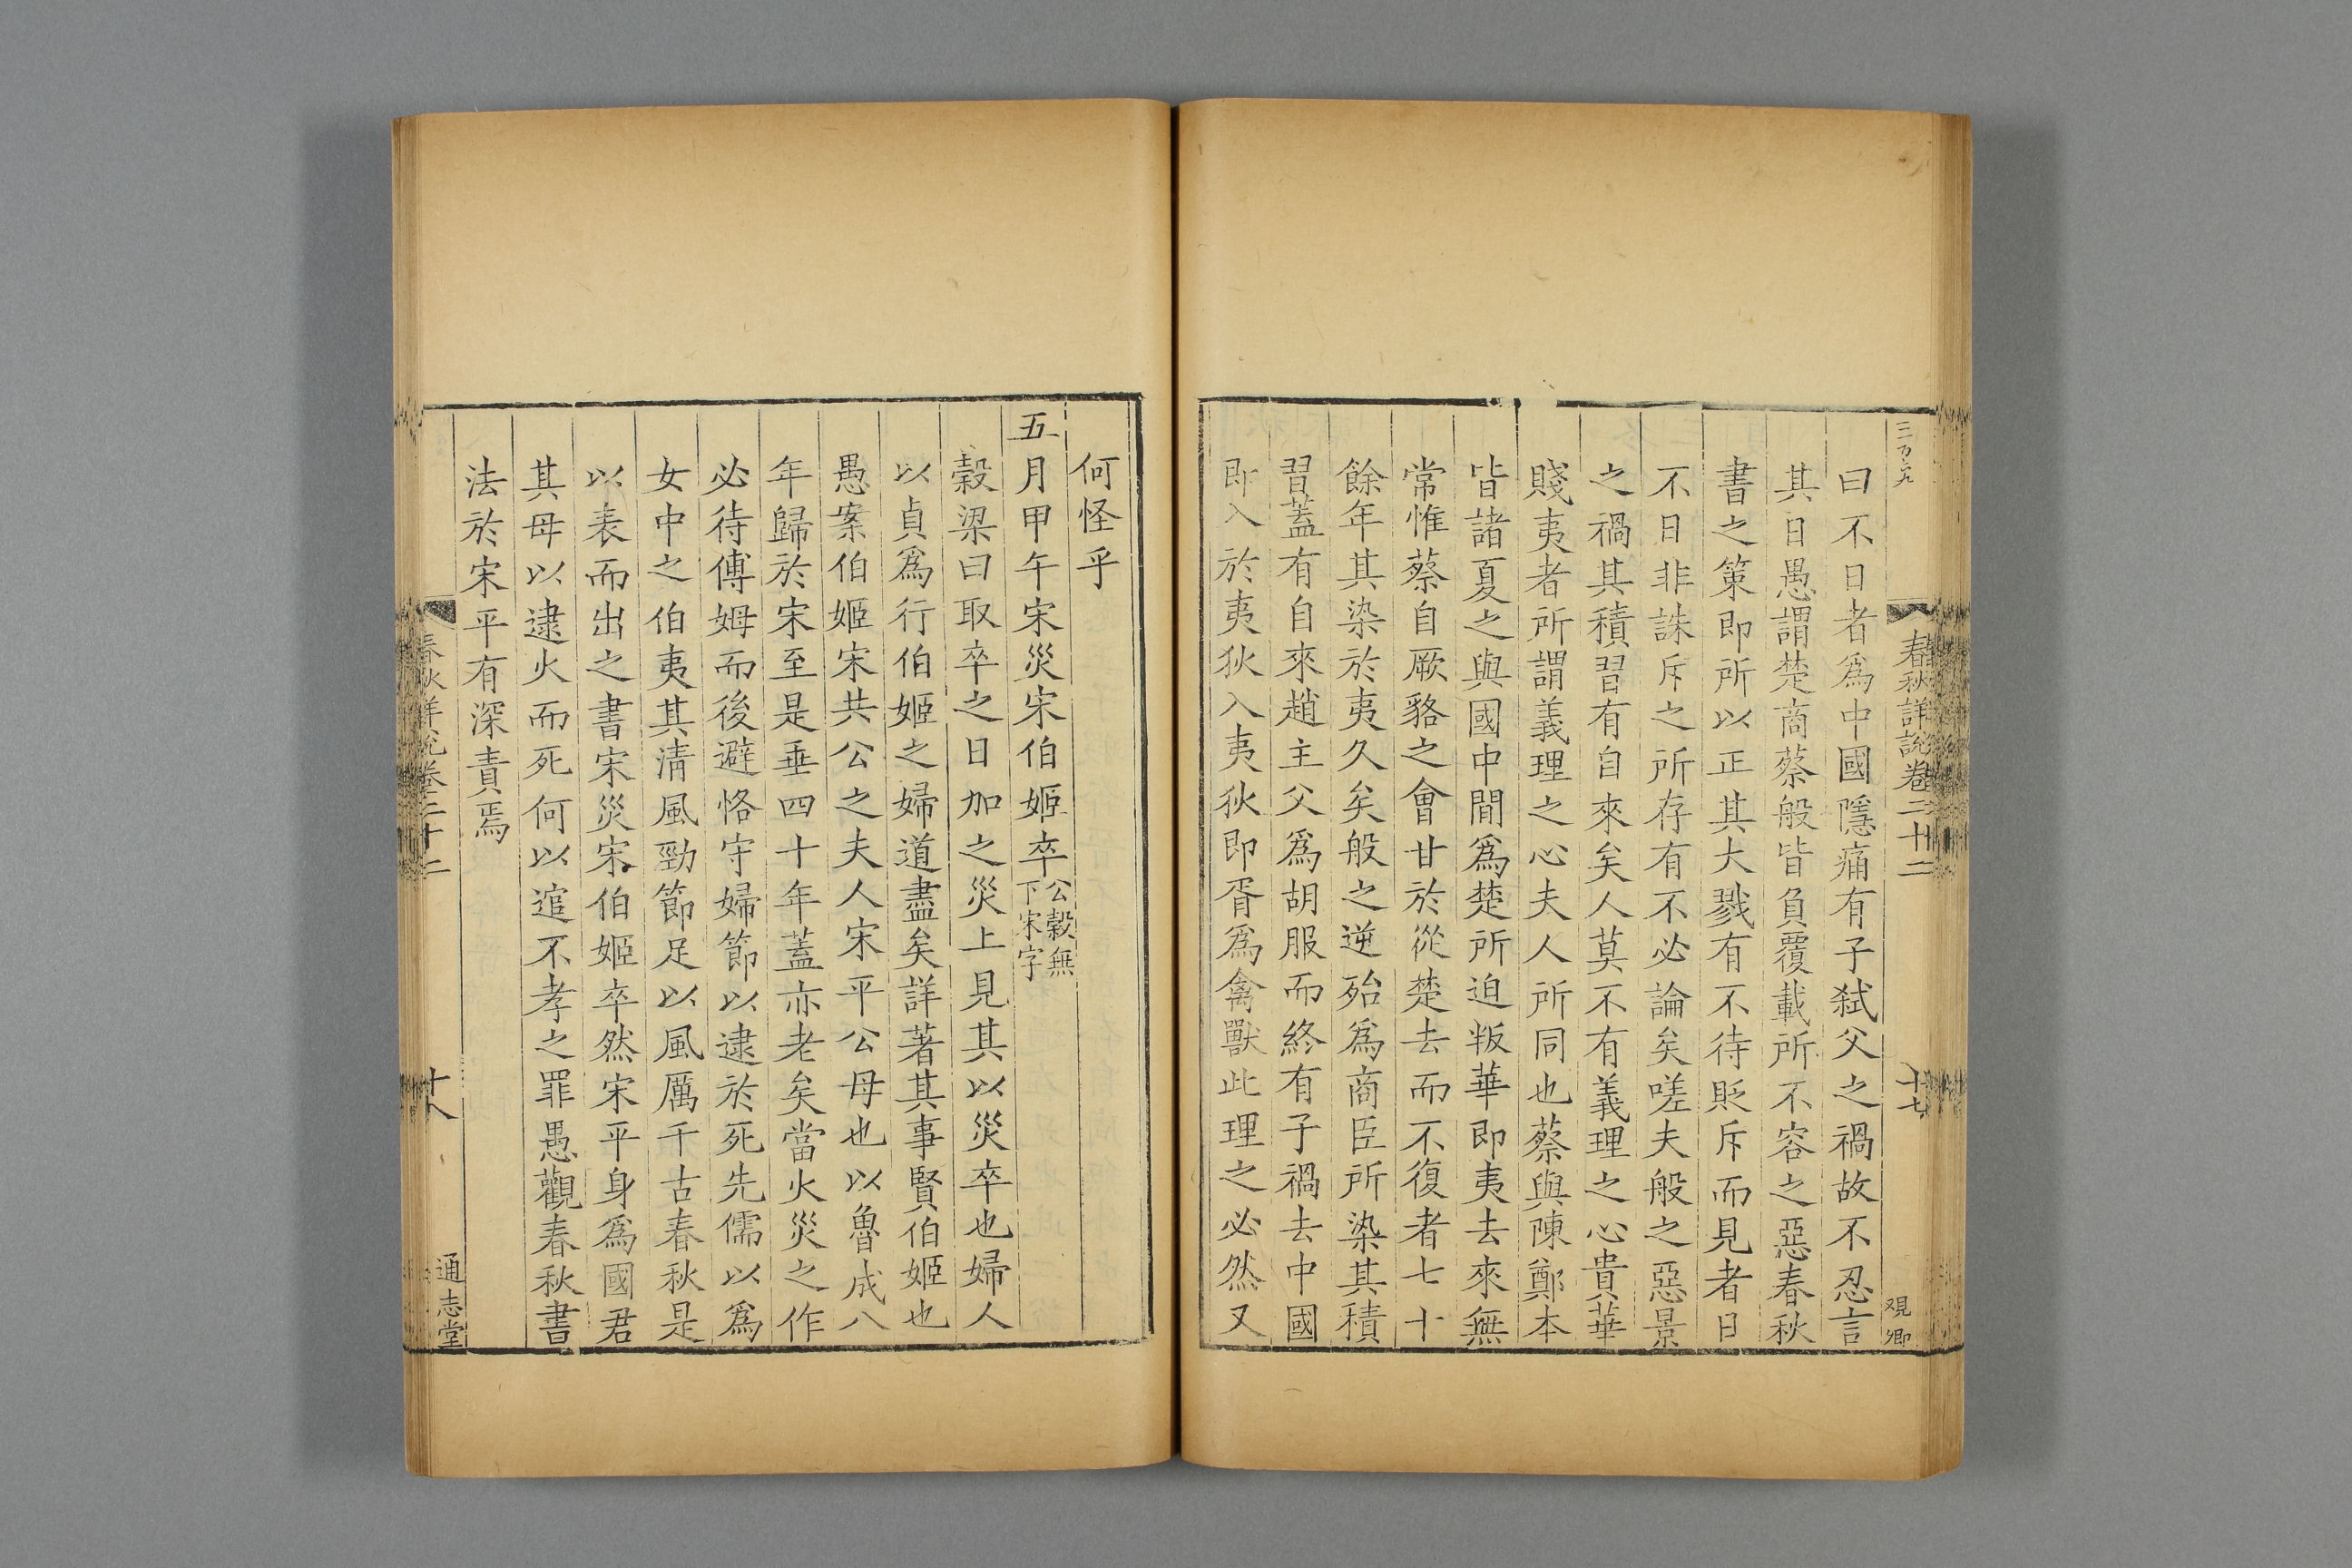 三百六九
春秋詳説卷二十二
十七
曰不日者爲中國隱痛有子弑父之禍故不忍言
其日愚謂楚商蔡般皆負覆載所不容之惡春秋
書之策即所以正其大戮有不待貶斥而見者日
不日非誅斥之所存有不必論矣嗟夫般之惡景
之禍其積習有自來矣人莫不有義理之心貴華
賤夷者所謂義理之心夫人所同也蔡與陳鄭本
皆諸夏之與國中間爲楚所迫叛華即夷去來無
常惟蔡自厥貉之會甘於從楚去而不復者七十
餘年其染於夷久矣般之逆殆爲商臣所染其積
習蓋有自來趙主父爲胡服而終有子禍去中國
即入於夷狄入夷狄即胥爲禽獸此理之必然又
何怪乎
五月甲午宋災宋伯姬卒公穀無下宋字
穀梁曰取卒之日加之災上見其以災卒也婦人
以貞爲行伯姬之婦道盡矣詳著其事賢伯姬也
愚案伯姬宋共公之夫人宋平公母也以魯成八
年歸於宋至是垂四十年蓋亦老矣當火災之作
必待傅姆而後避恪守婦節以逮於死先儒以爲
女中之伯夷其清風勁節足以風厲千古春秋是
以表而出之書宋災宋伯姬卒然宋平身爲國君
其母以逮火而死何以逭不孝之罪愚觀春秋書
法於宋平有深責焉
春秋詳説卷二十二
十八
通志堂